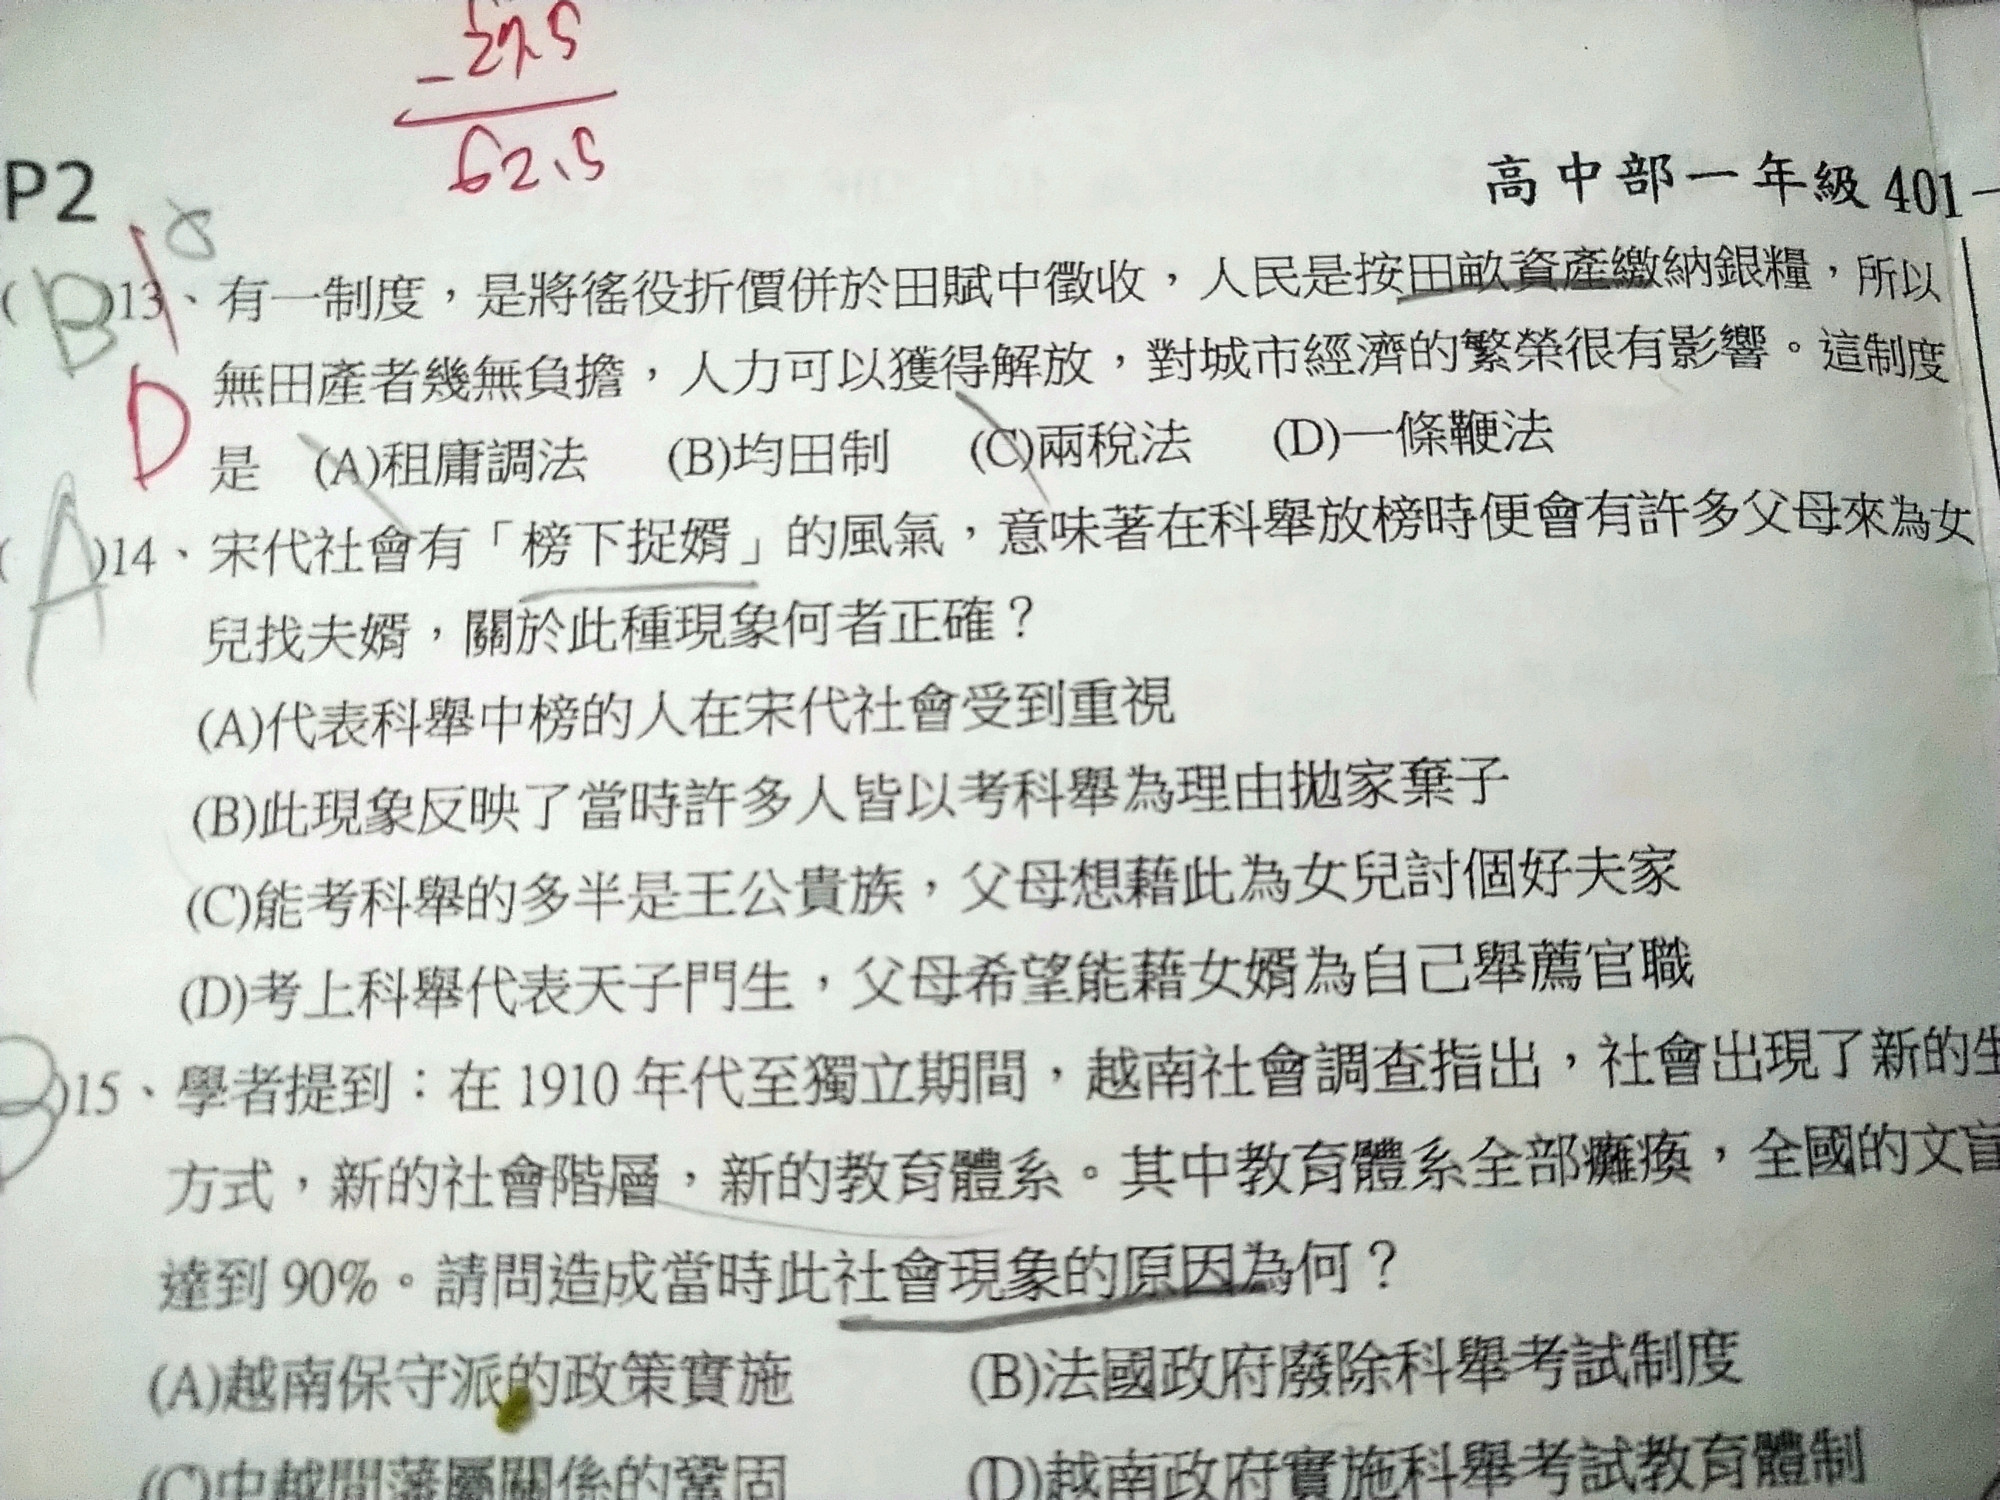 - 37.5
62.5
P2
高中部一年級 401
(B)13、有一制度，是將徭役折價併於田賦中徵收，人民是按田畝資產繳納銀糧，所以
D 無田產者幾無負擔，人力可以獲得解放，對城市經濟的繁榮很有影響。這制度
是 (A)租庸調法 (B)均田制 (C)兩稅法 (D)一條鞭法
(A)14、宋代社會有「榜下捉婿」的風氣，意味著在科舉放榜時便會有許多父母來為女
兒找夫婿，關於此種現象何者正確？
(A)代表科舉中榜的人在宋代社會受到重視
(B)此現象反映了當時許多人皆以考科舉為理由拋家棄子
(C)能考科舉的多半是王公貴族，父母想藉此為女兒討個好夫家
(D)考上科舉代表天子門生，父母希望能藉女婿為自己舉薦官職
B)15、學者提到：在 1910 年代至獨立期間，越南社會調查指出，社會出現了新的生
方式，新的社會階層，新的教育體系。其中教育體系全部癱瘓，全國的文盲
達到 90%。請問造成當時此社會現象的原因為何？
(A)越南保守派的政策實施 (B)法國政府廢除科舉考試制度
(C)中越間藩屬關係的鞏固 (D)越南政府實施科舉考試教育體制